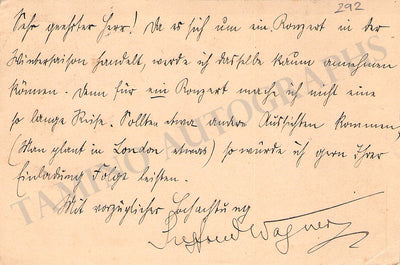 292
Sehr geehrter Herr! Da es sich um ein Konzert in der
Wintersaison handelt, werde ich dasselbe kaum annehmen
können. Denn für ein Konzert mache ich nicht eine
so lange Reise. Sollten etwa andere Aussichten kommen,
(Man plant in London etwas) so würde ich gern Ihrer
Einladung Folge leisten.
Mit vorzüglicher Hochachtung
Siegfried Wagner
TAMINO AUTOGRAPHS